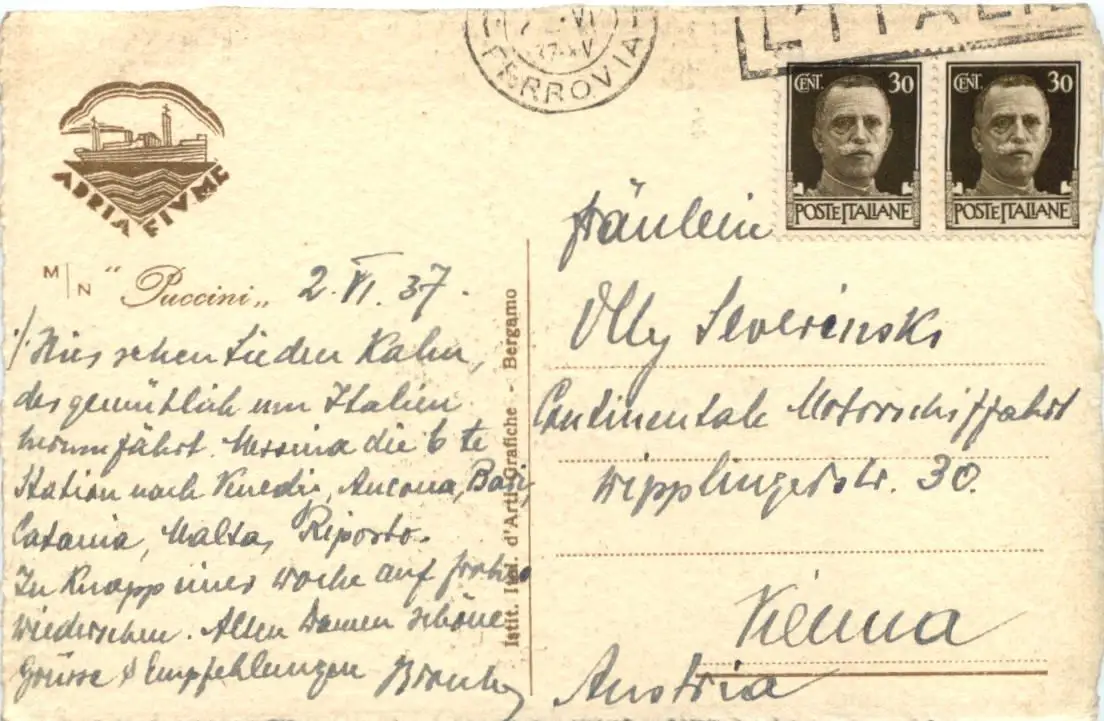 FERROVIA
L'ITALI
CENT. 30
POSTE ITALIANE
CENT. 30
POSTE ITALIANE
ADRIA FIVME
M/N "Puccini„ 2.VI.37.
Hier sehen Sie den Kahn,
der gemütlich um Italien
herumfährt. Messina die 6te
Station nach Venedig, Ancona, Bari,
Catania, Malta, Riposto.
In Knapp einer Woche auf frohes
wiedersehen. Allen Damen schöne
Grüsse & Empfehlungen
Istit. Ital. d'Arti Grafiche - Bergamo
Fräulein
Olly Severinski
Continentale Motorschiffahrt
Wipplingerstr. 30.
Vienna
Austria